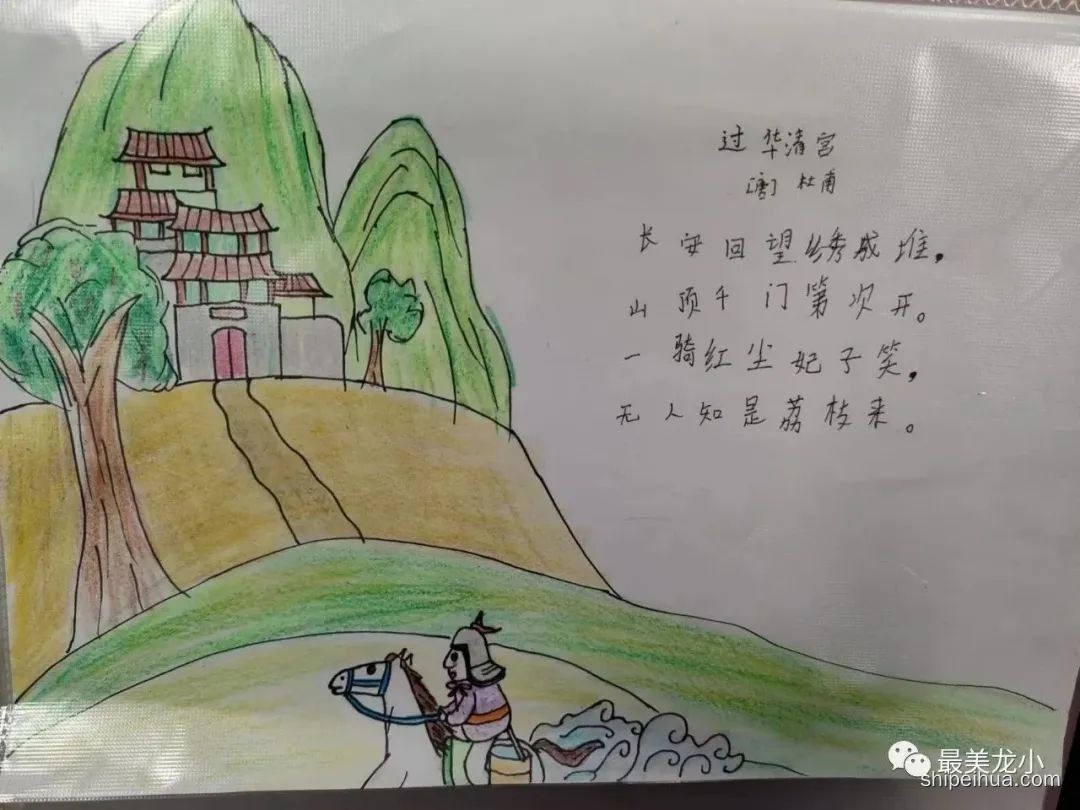 过华清宫
[唐] 杜
长安回望绣成堆，
山顶千门第次开。
一骑红尘妃子笑，
无人知是荔枝来。
最美龙小
shipeihua.com